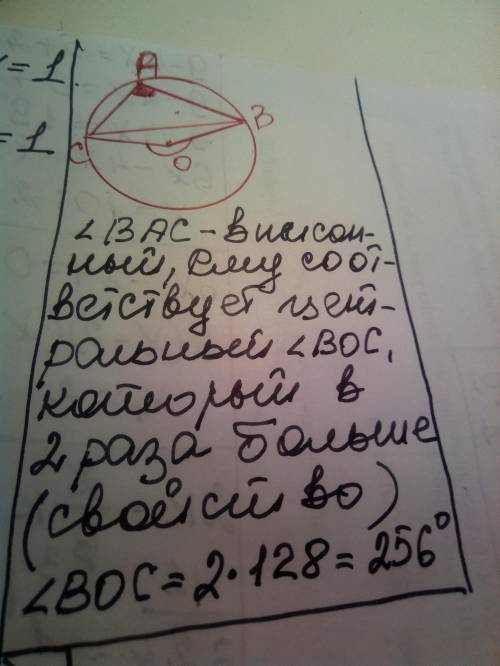 x=1
=1
A
B
C
O
∠BAC - вписан-
ный, ему соот-
ветствует цент-
ральный ∠BOC,
который в
2 раза больше
(свойство)
∠BOC = 2·128 = 256°